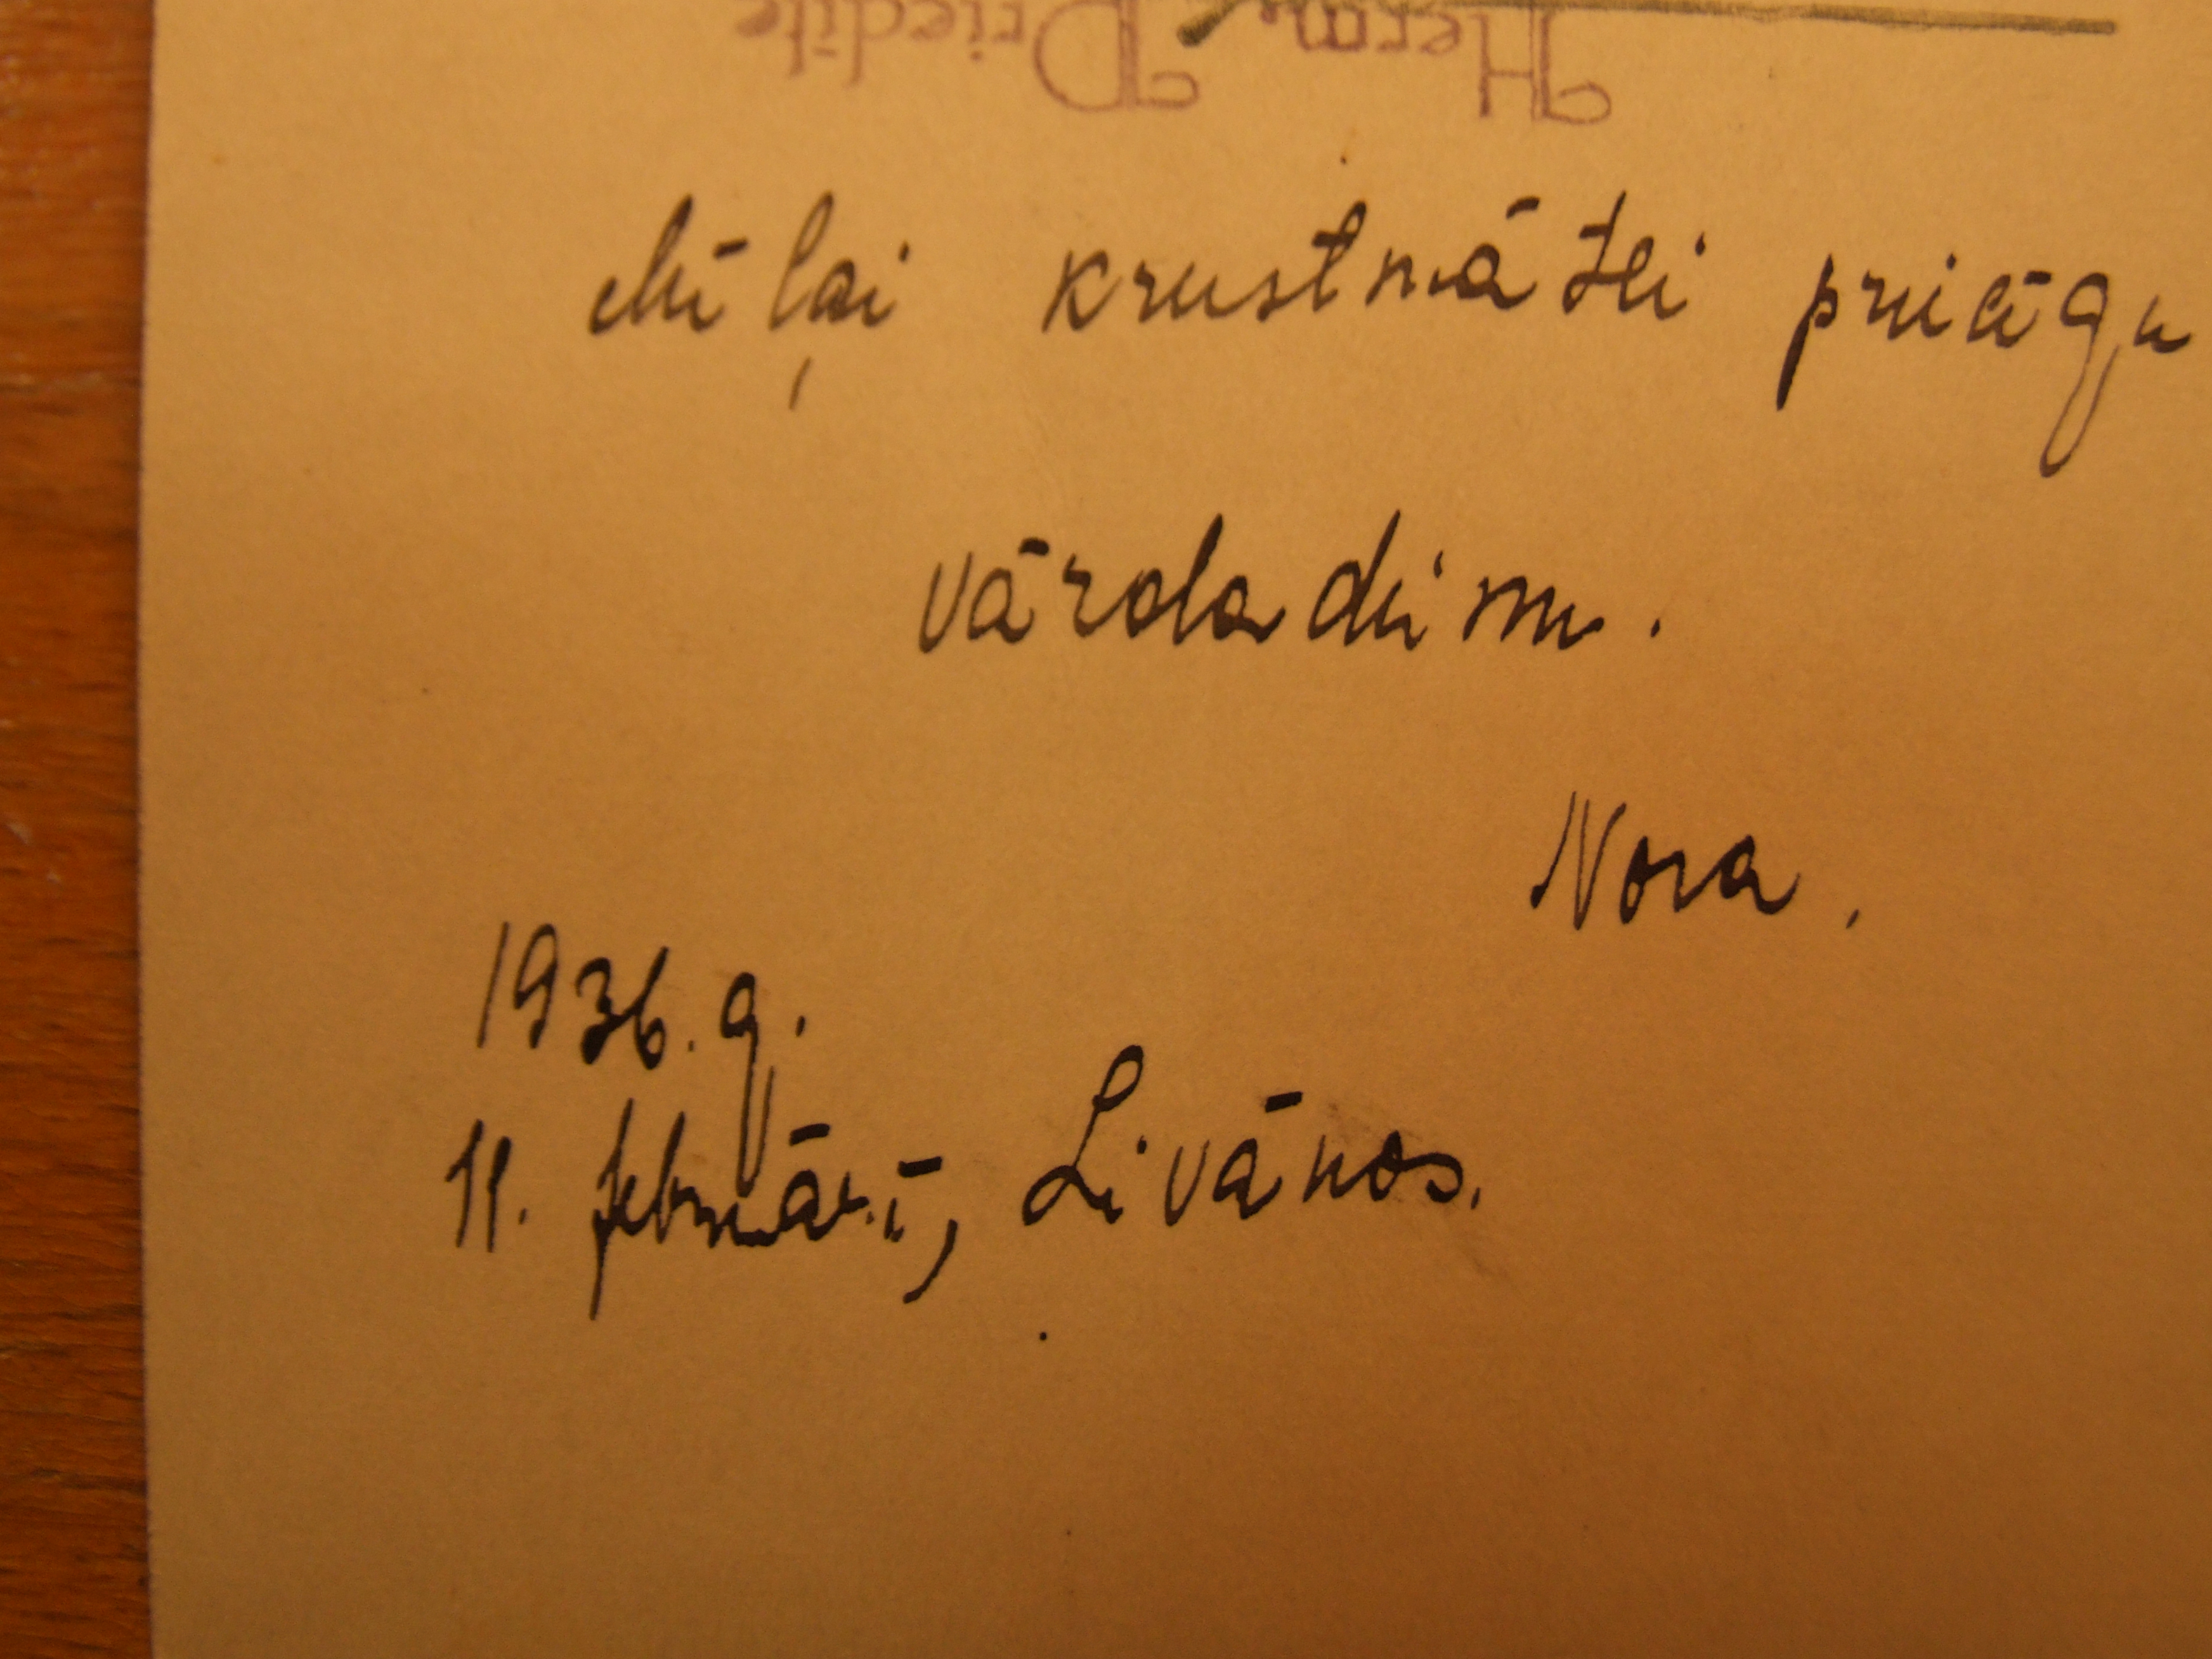 Herm. Priedīte
Mīļai krustmātei priecīgu
vārdadienu.
Nora.
1936. g.
11. februārī, Līvānos.